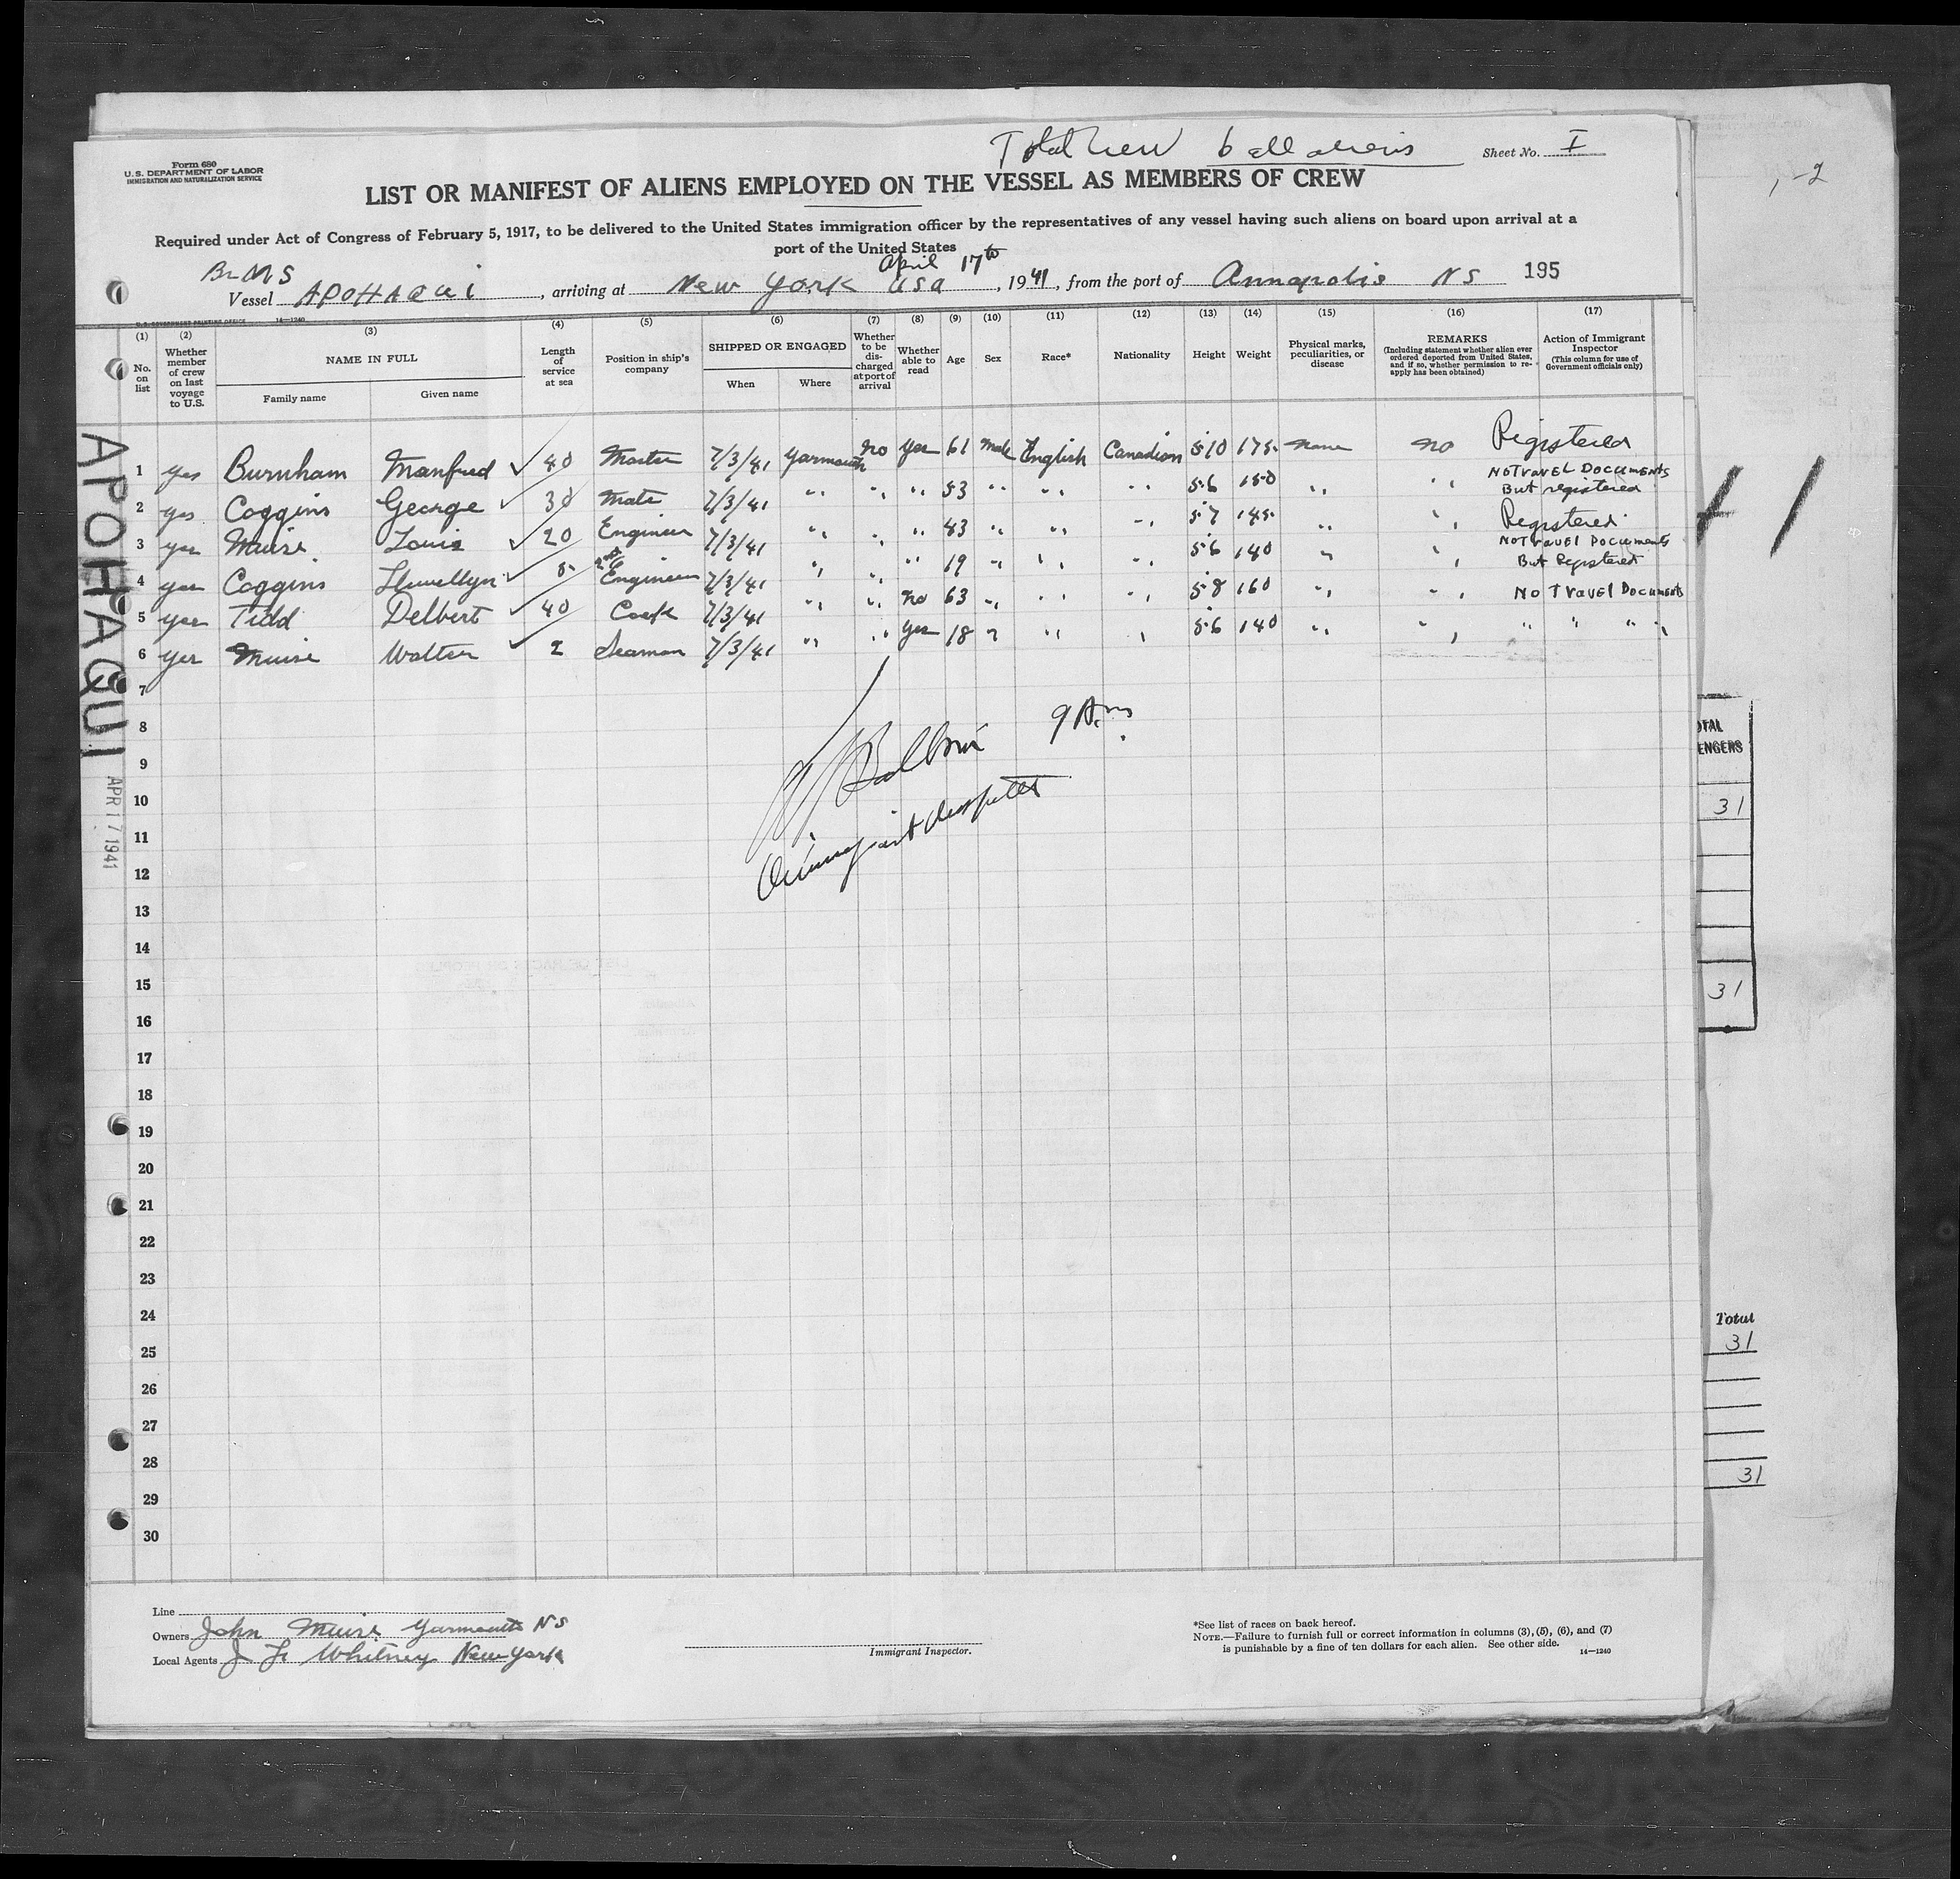 Total Crew 6 all aliens
Sheet No. I
Form 680
U.S. DEPARTMENT OF LABOR
IMMIGRATION AND NATURALIZATION SERVICE
, -2
LIST OR MANIFEST OF ALIENS EMPLOYED ON THE VESSEL AS MEMBERS OF CREW
Required under Act of Congress of February 5, 1917, to be delivered to the United States immigration officer by the representatives of any vessel having such aliens on board upon arrival at a
port of the United States
Br MS
April 17th
Vessel APOHAQUI, arriving at New York USA, 1941, from the port of Annapolis NS 195
U. S. GOVERNMENT PRINTING OFFICE 14—1240
(1) No. on list
(2) Whether member of crew on last voyage to U.S.
(3) NAME IN FULL
Family name
Given name
(4) Length of service at sea
(5) Position in ship's company
(6) SHIPPED OR ENGAGED
When
Where
(7) Whether to be discharged at port of arrival
(8) Whether able to read
(9) Age
(10) Sex
(11) Race*
(12) Nationality
(13) Height
(14) Weight
(15) Physical marks, peculiarities, or disease
(16) REMARKS
(Including statement whether alien ever ordered deported from United States, and if so, whether permission to re-apply has been obtained)
(17) Action of Immigrant Inspector
(This column for use of Government officials only)
1 yes Burnham Manfred ✓ 40 Master 7/3/41 Yarmouth no yes 61 Male English Canadian 5 10 175 None no Registered
2 yes Coggins George ✓ 30 Mate 7/3/41 " " " 53 " " " 5-6 150 " " No Travel Documents But registered
3 yes Muise Louis ✓ 20 Engineer 7/3/41 " " " 43 " " " 5-7 145 " " Registered
4 yes Coggins Llewellyn ✓ 5 2nd Engineer 7/3/41 " " " 19 " " " 5-6 140 " " No Travel Documents But Registered
5 yes Tidd Delbert ✓ 40 Cook 7/3/41 " " no 63 " " " 5-8 160 " " No Travel Documents
6 yes Muise Walter ✓ 2 Seaman 7/3/41 " " yes 18 " " " 5-6 140 " " " " "
7
8
9
10
11
12
13
14
15
16
17
18
19
20
21
22
23
24
25
26
27
28
29
30
9 A.m.
APOHAQUI
APR 17 1941
41
OTAL
ENGERS
31
31
Total
31
31
Line
Owners John Muise Yarmouth NS
Local Agents J F Whitney New York
Immigrant Inspector.
*See list of races on back hereof.
NOTE.—Failure to furnish full or correct information in columns (3), (5), (6), and (7)
is punishable by a fine of ten dollars for each alien. See other side.
14—1240